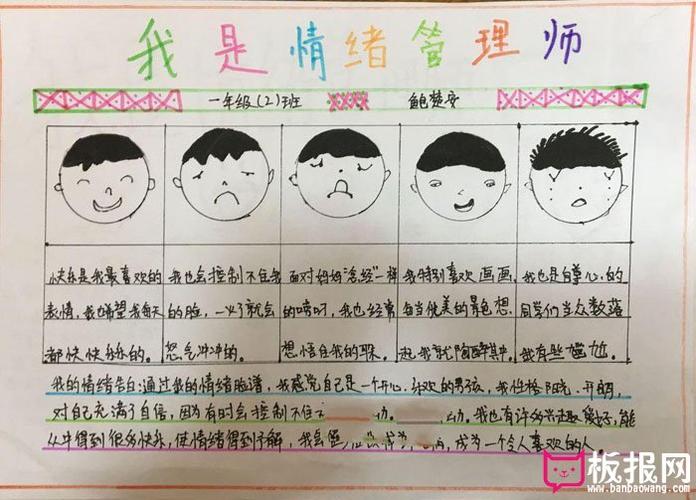 我是情绪管理师
一年级(2)班
鲍楚安
快乐是我最喜欢的
表情,我希望我每天
都快快乐乐的。
我也会控制不住我
的脸,一火了就会
怒气冲冲的。
面对妈妈"念经"一样
的唠叨,我也经常
想悟住我的耳朵。
我特别喜欢画画,
每当优美的景色想
起我就陶醉其中。
我也是自尊心的
同学们当众数落
我有些尴尬。
我的情绪告白:通过我的情绪脸谱,我感觉自己是一个开心、欢的男孩,我性格阳光、开朗,
对自己充满了自信,因为有时会控制不住 功。 动。我也有许多兴趣爱好,能
从中得到很多快乐,使情绪得到 解,我会 成为一个令人喜欢的人。
板报网
www.banbaowang.com